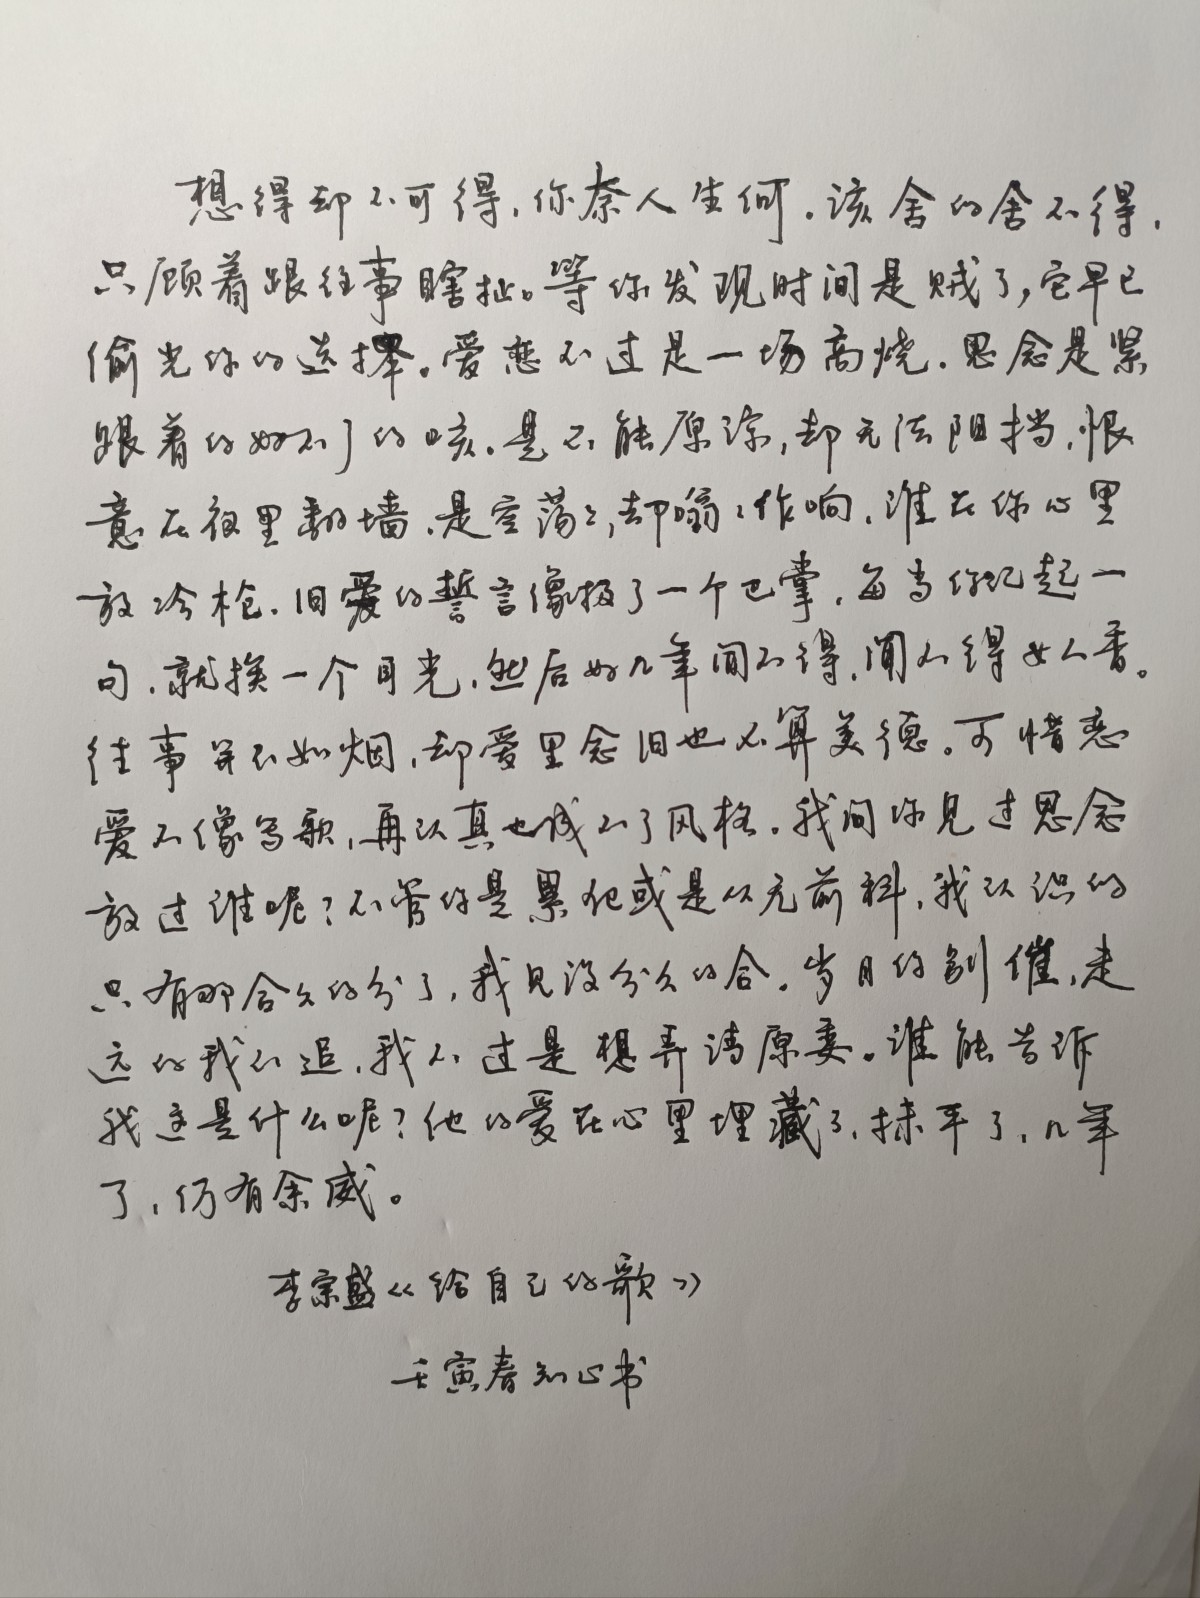 想得却不可得，你奈人生何。该舍的舍不得，
只顾着跟往事瞎扯。等你发现时间是贼了，它早已
偷光你的选择。爱恋不过是一场高烧．思念是紧
跟着的好不了的咳．是不能原谅，却无法阻挡，恨
意在夜里翻墙．是空荡々，却嗡々作响．谁在你心里
放冷枪．旧爱的誓言像极了一个巴掌．每当你记起一
句．就挨一个耳光．然后好几年闻不得，闻不得女人香。
往事并不如烟，却爱里念旧也不算美德。可惜恋
爱不像写歌，再认真也成不了风格．我问你见过思念
放过谁呢？不管你是累犯或是从无前科，我认识的
只有那合久的分了，我见没分久的合．岁月的别催，走
远的我不追．我不过是想弄清原委。谁能告诉
我这是什么呢？他的爱在心里埋藏了．抹平了．几年
了，仍有余威。
李宗盛《给自己的歌》
壬寅春知心书